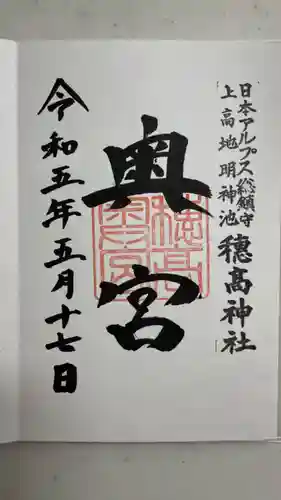 日本アルプス総鎮守
上高地明神池
穂高神社
奥宮
令和五年五月十七日